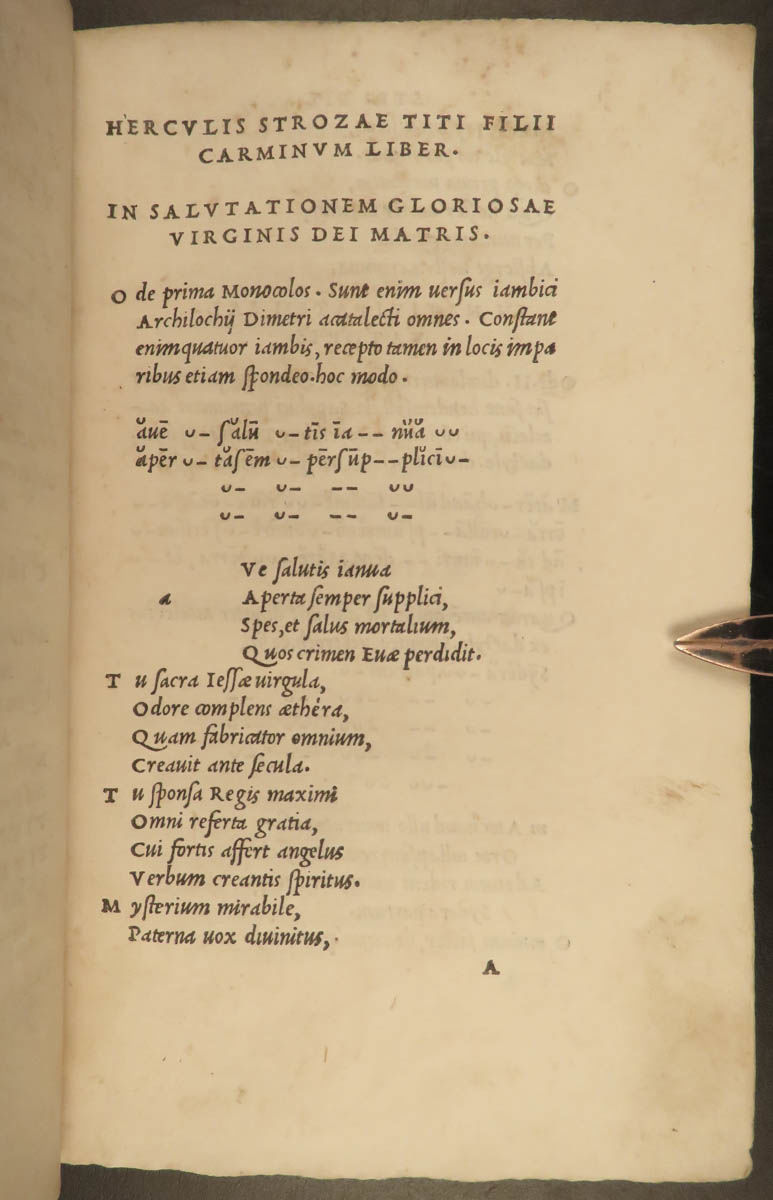 HERCVLIS STROZAE TITI FILII
CARMINVM LIBER.
IN SALVTATIONEM GLORIOSAE
VIRGINIS DEI MATRIS.
O de prima Monocolos. Sunt enim uersus iambici
Archilochij Dimetri acatalecti omnes. Constant
enimquatuor iambis, recepto tamen in locis impa
ribus etiam spondeo.hoc modo.
ăuē ᴗ– sălū ᴗ–tīs īa –– nŭă ᴗᴗ
ăpēr ᴗ– tăsēm ᴗ– pērsūp––plĭcī ᴗ–
ᴗ– ᴗ– –– ᴗᴗ
ᴗ– ᴗ– –– ᴗ–
Ve salutis ianua
a Aperta semper supplici,
Spes,et salus mortalium,
Quos crimen Euæ perdidit.
T u sacra Iessæ uirgula,
Odore complens æthéra,
Quam fabricator omnium,
Creauit ante secula.
T u sponsa Regis maximi
Omni referta gratia,
Cui fortis affert angelus
Verbum creantis spiritus.
M ysterium mirabile,
Paterna uox diuinitus,
A